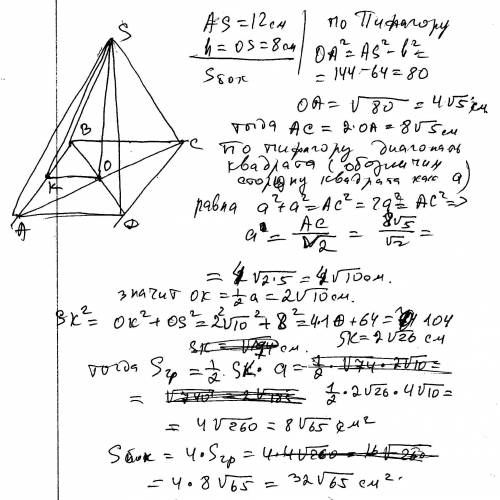 S
B
C
O
K
A
D
AS = 12 см
h = OS = 8 см
Sбок
по Пифагору
OA² = AS² - h² =
= 144 - 64 = 80
OA = √80 = 4√5 см
тогда AC = 2·OA = 8√5 см
по пифагору диагональ
квадрата (обозначим
сторону квадрата как a)
равна a² + a² = AC² = 2a² = AC² ⇒
a = AC/√2 = 8√5/√2 =
= 4√2·5 = 4√10 см.
значит OK = ½a = 2√10 см.
SK² = OK² + OS² = 2²√10² + 8² = 4·10 + 64 = 104
см. SK = 2√26 см
тогда Sгр = ½·SK·a =
= ½·2√26·4√10 =
= 4√260 = 8√65 см²
Sбок = 4·Sгр =
= 4·8√65 = 32√65 см²